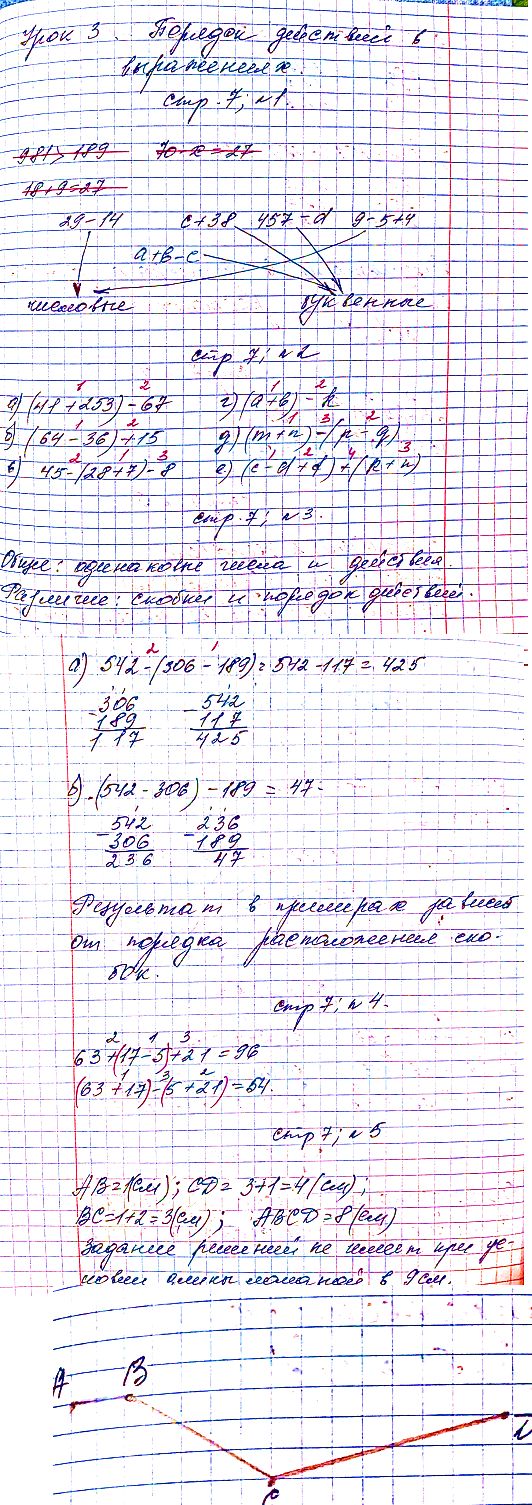 Урок 3. Порядок действий в
выражениях.
стр. 7; №1.
981 > 189 70-x=27
18+9=27
29-14 c+38 457-d 9-5+4
a+b-c
числовые буквенные
стр 7; №2
1 2 1 2
а) (41+253)-67 г) (a+b)-k
1 2 1 3 2
б) (64-36)+15 д) (m+n)-(p-q)
2 1 3 1 2 4 3
в) 45-(28+7)-8 е) (c-d+d)+(k+n)
стр. 7; №3.
Общее: одинаковые числа и действия.
Различие: скобки и порядок действий.
2 1
а) 542-(306-189)=542-117=425
306 542
- 189 - 117
117 425
б) (542-306)-189 = 47.
542 236
- 306 - 189
236 47
Результат в примерах зависит
от порядка расположения ско-
бок.
стр 7; №4.
2 1 3
63+(17-5)+21=96
1 3 2
(63+17)-(5+21)=54.
стр 7; №5
AB=1(см); CD= 3+1=4(см);
BC=1+2=3(см); ABCD=8(см)
Задание решений не имеет при ус-
ловии длины ломаной в 9см.
A B
D
C